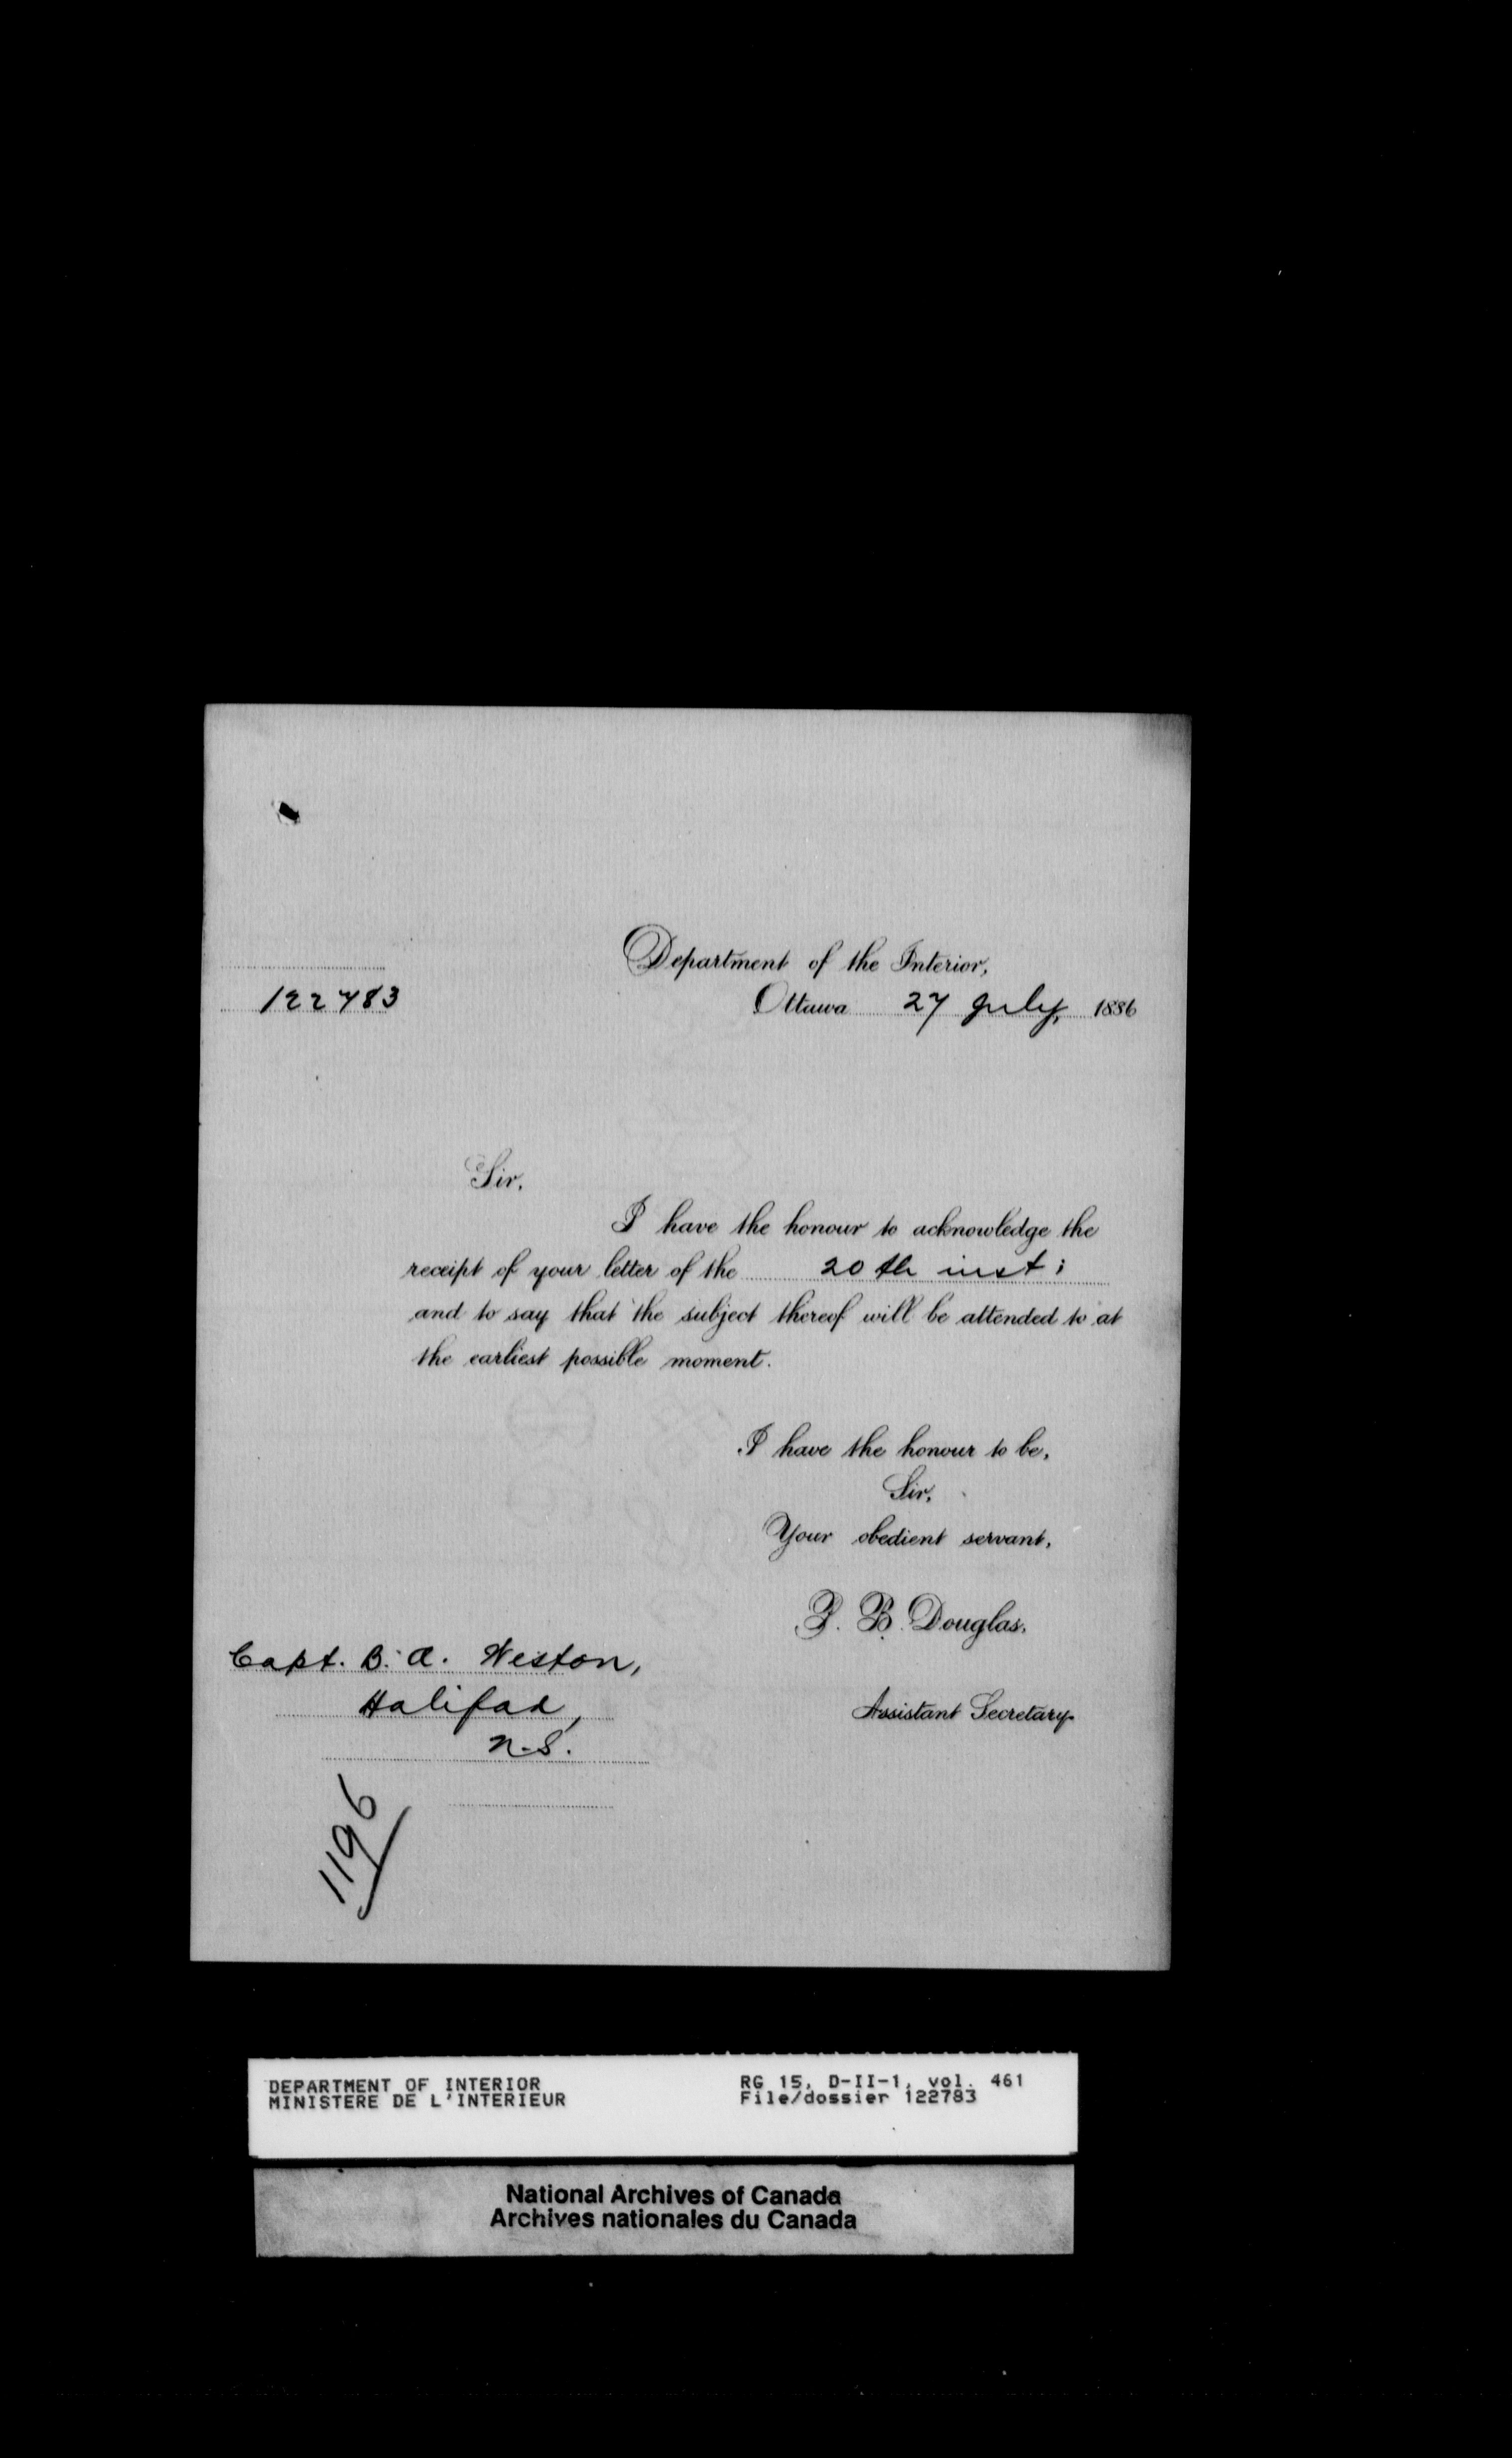 Department of the Interior,
122783
Ottawa 27 July, 1886
Sir,
I have the honour to acknowledge the
receipt of your letter of the 20th inst;
and to say that the subject thereof will be attended to at
the earliest possible moment.
I have the honour to be,
Sir,
Your obedient servant,
P. B. Douglas.
Assistant Secretary.
Capt. B. A. Weston,
Halifax,
N.S.
1196
DEPARTMENT OF INTERIOR
MINISTERE DE L'INTERIEUR
RG 15, D-II-1, vol. 461
File/dossier 122783
National Archives of Canada
Archives nationales du Canada